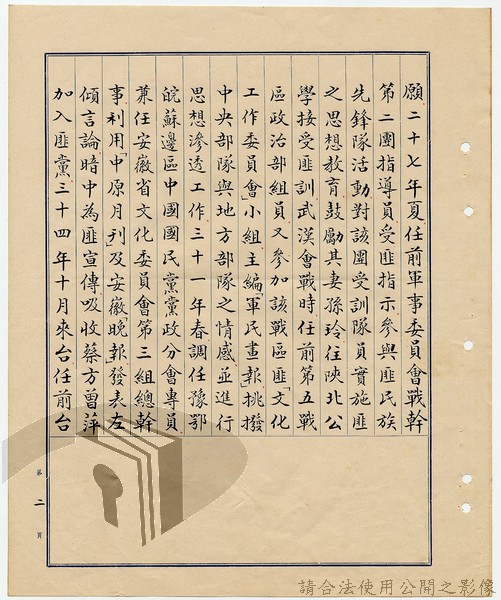 願二十七年夏任前軍事委員會戰幹
第二團指導員受匪指示參與匪民族
先鋒隊活動對該團受訓隊員實施匪
之思想教育鼓勵其妻孫玲往陝北公
學接受匪訓武漢會戰時任前第五戰
區政治部組員又參加該戰區匪「文化
工作委員會」小組主編「軍民畫報」挑撥
中央部隊與地方部隊之情感並進行
思想滲透工作三十一年春調任豫鄂
皖蘇邊區中國國民黨黨政分會專員
兼任安徽省文化委員會第三組總幹
事利用中原月刊及安徽「晚報」發表左
傾言論暗中為匪宣傳吸收蔡方曾萍
加入匪黨三十四年十月來台任前台
第二頁
請合法使用公開之影像